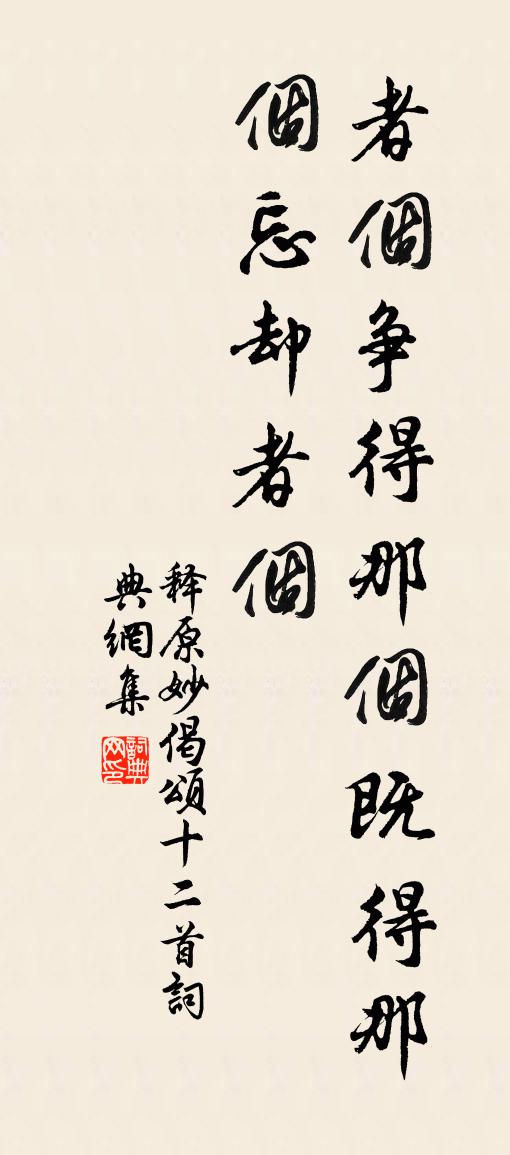 者個争得那個既得那
個忘却者個
释原妙偈頌十二首詞
典網集
詞典网印